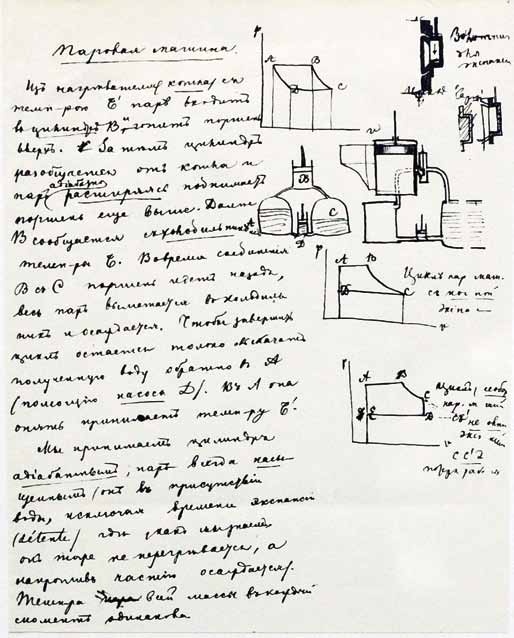 Паровая машина.
Изъ нагревателя котла съ
темп-рою t' паръ входитъ
въ цилиндръ B и гонитъ поршень
вверхъ. Затемъ цилиндръ
разобщается отъ котла и
паръ адіабатно расширяясь поднимаетъ
поршень еще выше. Далее
B сообщается съ холодильникомъ
темп-ры t. Во время соединенія
B съ C поршень идетъ назадъ,
весь паръ выметается въ холодиль
никъ и осаждается. Чтобы завершить
циклъ остается только вкачать
полученную воду обратно въ A
(помощію насоса D). Въ A она
опять принимаетъ темп-ру t'.
Мы принимаемъ цилиндръ
адіабатнымъ; паръ всегда насы
щеннымъ (онъ въ присутствіи
воды, исключая времени экспансіи
(détente) где какъ мы знаемъ
онъ тоже не перегревается, а
напротивъ частію осаждается).
Темп-ра всей массы въ каждый
моментъ одинакова
p
A B
D C
v
B
C
D
p
A B
D C
v
Циклъ пар. маш.
съ полной
экспа
p
A B
C
E D
v
Циклъ
пар. м
съ не
C C' D